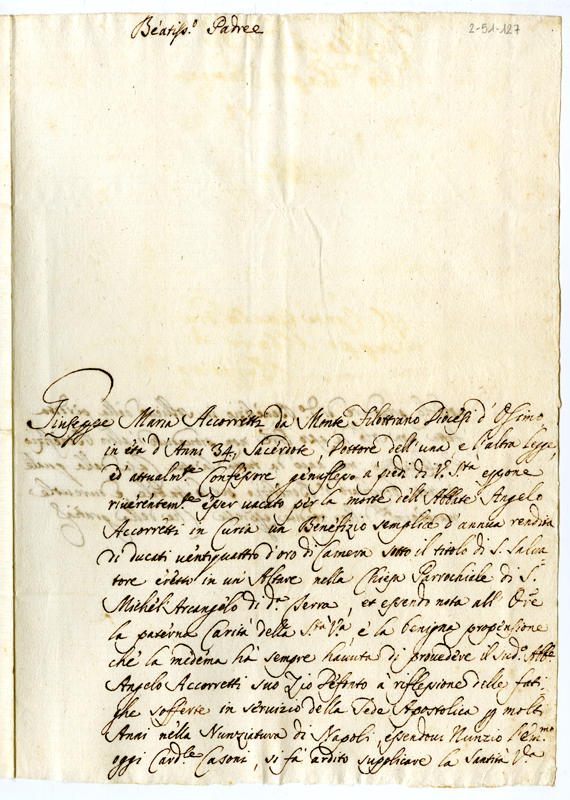 Beatiss.º Padree
2-51-127
Giuseppe Maria Accorretti da Monte Filottrano Diocesi d'Osimo
in età d'Anni 34, Sacerdote, Dottore dell'una e l'altra legge,
ed' attualm.te Confessore, genuflesso a piedi di V. S.tà espone
riverentem.te esser vacato per la morte dell'Abbate Angelo
Accorretti in Curia un Benefizio semplice d'annua rendita
di ducati ventiquattro d'oro di Camera sotto il titolo di S. Salva
tore eretto in un'Altare nella Chiesa Parrochiele di S.
Michel'Arcangelo di d.a Terra, et essendo nota all' Ore
la paterna Carità della S.tà V.a e la benigna propensione
che la medema hà sempre havuta di provedere il sud.o Abb.e
Angelo Accorretti suo Zio Defonto à riflessione delle fati
ghe sofferte in servizio della Sede Apostolica p molti
Anni nella Nunziatura di Napoli, essendovi Nunzio l'em.mo
oggi Card.le Casoni, si fà ardito supplicare la Santità V.a